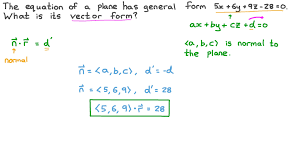 The equation of a plane has general form 5x + 6y + 9z - 28 = 0.
What is its vector form?
ax + by + cz + d = 0
n⃗ · r⃗ = d'
normal
⟨a, b, c⟩ is normal to
the plane.
n⃗ = ⟨a, b, c⟩, d' = -d
n⃗ = ⟨5, 6, 9⟩, d' = 28
⟨5, 6, 9⟩ · r⃗ = 28